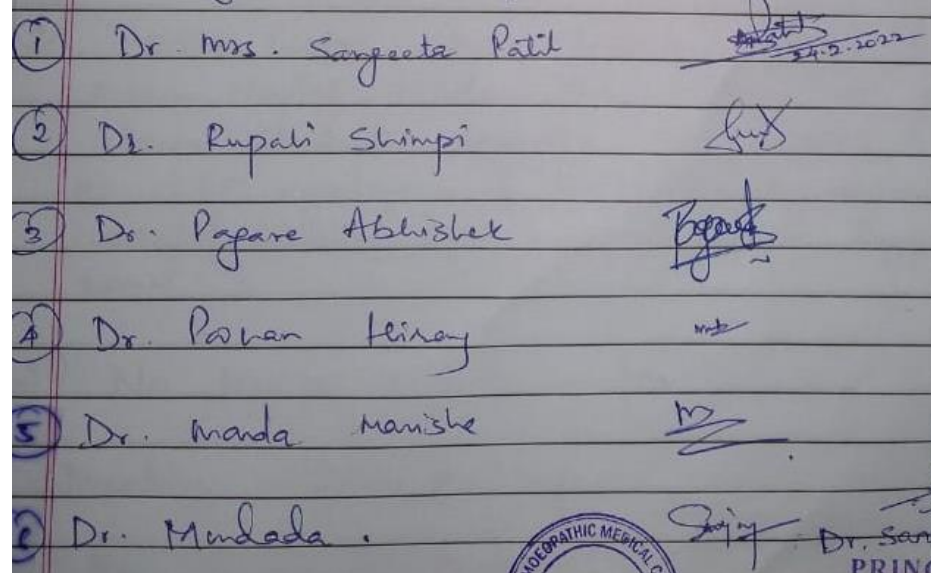 1 Dr. Mrs. Sangeeta Patil
24.2.2022
2 Dr. Rupali Shimpi
3 Dr. Pagare Abhishek
4 Dr. Poonam
5 Dr. Manda Manisha
6 Dr. Mundada.
Dr. San
MOEOPATHIC MEDICAL C
PRINC